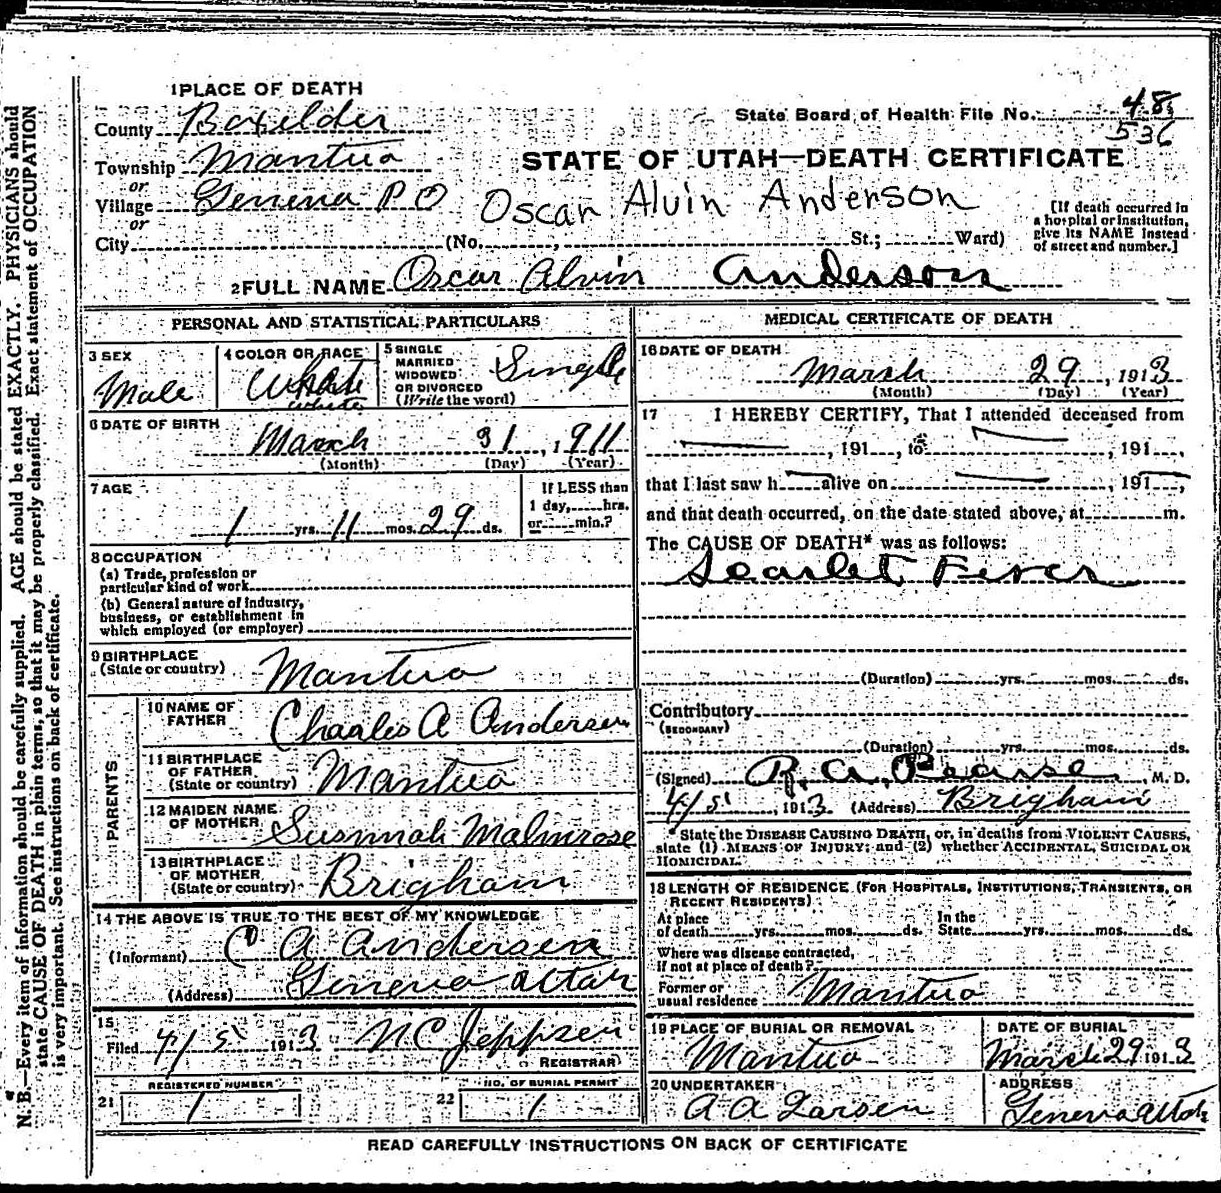 1 PLACE OF DEATH
County Boxelder
State Board of Health File No. 48
536
Township Mantua
STATE OF UTAH—DEATH CERTIFICATE
or
Village Geneva P O
Oscar Alvin Anderson
or
City (No. , St.; Ward)
[If death occurred in
a hospital or institution,
give its NAME instead
of street and number.]
2 FULL NAME Oscar Alvin Anderson
PERSONAL AND STATISTICAL PARTICULARS
3 SEX
Male
4 COLOR OR RACE
White
White
5 SINGLE
MARRIED
WIDOWED
OR DIVORCED
(Write the word)
Single
6 DATE OF BIRTH
March 31, 1911
(Month) (Day) (Year)
7 AGE
1 yrs. 11 mos. 29 ds.
If LESS than
1 day, hrs.
or min.?
8 OCCUPATION
(a) Trade, profession or
particular kind of work
(b) General nature of industry,
business, or establishment in
which employed (or employer)
9 BIRTHPLACE
(State or country) Mantua
PARENTS
10 NAME OF
FATHER Charles A Andersen
11 BIRTHPLACE
OF FATHER
(State or country) Mantua
12 MAIDEN NAME
OF MOTHER Susannah Malmrose
13 BIRTHPLACE
OF MOTHER
(State or country) Brigham
14 THE ABOVE IS TRUE TO THE BEST OF MY KNOWLEDGE
(Informant) C A Andersen
(Address) Geneva Utah
15
Filed 4/5 1913 N C Jeppsen
REGISTRAR
REGISTERED NUMBER
21 1
NO. OF BURIAL PERMIT
22 1
MEDICAL CERTIFICATE OF DEATH
16 DATE OF DEATH
March 29, 1913
(Month) (Day) (Year)
17 I HEREBY CERTIFY, That I attended deceased from
, 191 , to , 191 ,
that I last saw h alive on , 191 ,
and that death occurred, on the date stated above, at m.
The CAUSE OF DEATH* was as follows:
Scarlet Fever
(Duration) yrs. mos. ds.
Contributory
(SECONDARY)
(Duration) yrs. mos. ds.
(Signed) R. A. Pearse, M. D.
4/5, 1913 (Address) Brigham
*State the DISEASE CAUSING DEATH, or, in deaths from VIOLENT CAUSES,
state (1) MEANS OF INJURY; and (2) whether ACCIDENTAL, SUICIDAL OR
HOMICIDAL.
18 LENGTH OF RESIDENCE (FOR HOSPITALS, INSTITUTIONS, TRANSIENTS, OR
RECENT RESIDENTS)
At place
of death yrs. mos. ds.
In the
State yrs. mos. ds.
Where was disease contracted,
if not at place of death?
Former or
usual residence Mantua
19 PLACE OF BURIAL OR REMOVAL
Mantua
DATE OF BURIAL
March 29 1913
20 UNDERTAKER
A A Larsen
ADDRESS
Geneva Utah
READ CAREFULLY INSTRUCTIONS ON BACK OF CERTIFICATE
N. B.—Every item of information should be carefully supplied. AGE should be stated EXACTLY. PHYSICIANS should
state CAUSE OF DEATH in plain terms, so that it may be properly classified. Exact statement of OCCUPATION
is very important. See instructions on back of certificate.